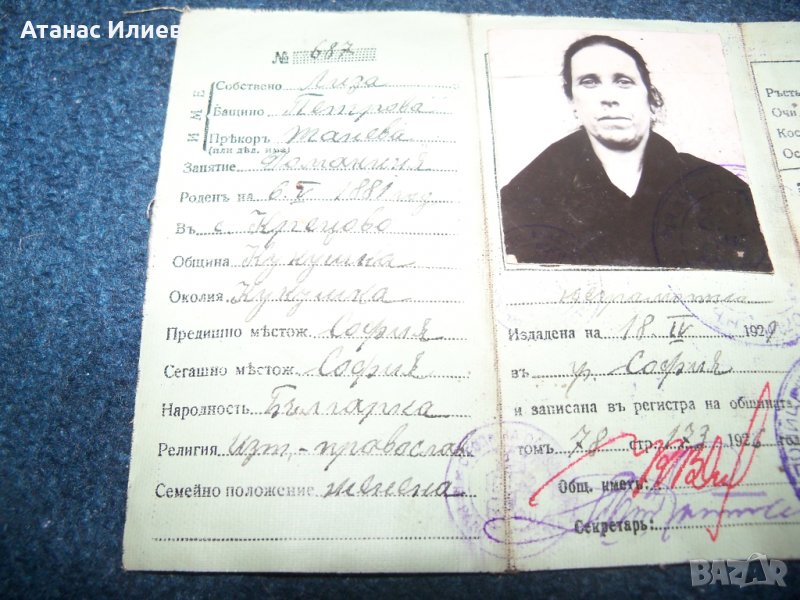 Атанас Илиев
№ 687
ИМЕ
Собствено Лиза
Бащино Петрова
Прѣкоръ Танева
(или др. име)
Занятие Домакиня
Роденъ на 6.V 1881 год
Въ с. Крецово
Община Кукушка
Околия Кукушка
Предишно мѣстож. София
Сегашно мѣстож. София
Народность Българка
Религия изт.-православ.
Семейно положение женена
Ръстъ
Очи
Кос
Ос
неграмотна
Издадена на 18 IV 1929
въ гр. София
и записана въ регистра на общината
томъ 78 стр. 133 192
Общ. кметъ:
Секретарь:
BAZAR